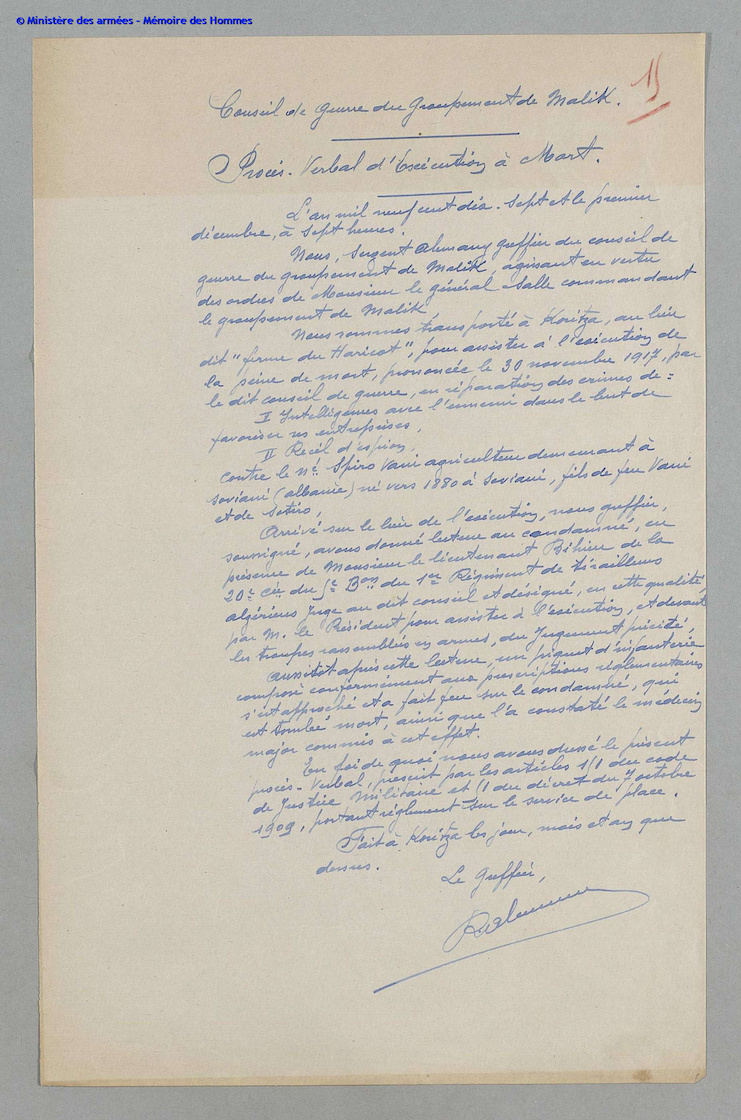 © Ministère des armées - Mémoire des Hommes
Conseil de guerre du Groupement de Malik.
Procès-Verbal d'Exécution à Mort.
L'an mil neuf cent dix-sept et le premier
décembre, à sept heures.
Nous, Sergent Alemany greffier du conseil de
guerre du groupement de Malik, agissant en vertu
des ordres de Monsieur le général Salle commandant
le groupement de Malik
Nous sommes transporté à Koritza, au lieu
dit "ferme du Haricot", pour assister à l'exécution de
la peine de mort, prononcée le 30 novembre 1917, par
le dit conseil de guerre, en réparation des crimes de =
I Intelligences avec l'ennemi dans le but de
favoriser ses entreprises,
II Recel d'espion,
contre le né Spiro Vani agriculteur demeurant à
Soviani (albanie) né vers 1880 à Soviani, fils de feu Vani
et de Sotiro,
Arrivé sur le lieu de l'exécution, nous greffier,
soussigné, avons donné lecture au condamné, en
présence de Monsieur le lieutenant Béhier de la
20e Cie du 5e Bon du 1er Régiment de tirailleurs
algériens Juge au dit conseil et désigné, en cette qualité,
par M. le Président pour assister à l'exécution, et devant
les troupes rassemblées en armes, du Jugement précité,
aussitôt après cette lecture, un piquet d'infanterie
composé conformément aux prescriptions réglementaires
s'est approché et a fait feu sur le condamné, qui
est tombé mort, ainsi que l'a constaté le médecin
major commis à cet effet.
En foi de quoi nous avons dressé le présent
procès-verbal, prescrit par les articles 151 du code
de Justice Militaire et 51 du décret du 7 octobre
1909, portant réglement sur le service de place.
Fait à Koritza les jour, mois et an que
dessus.
Le Greffier,